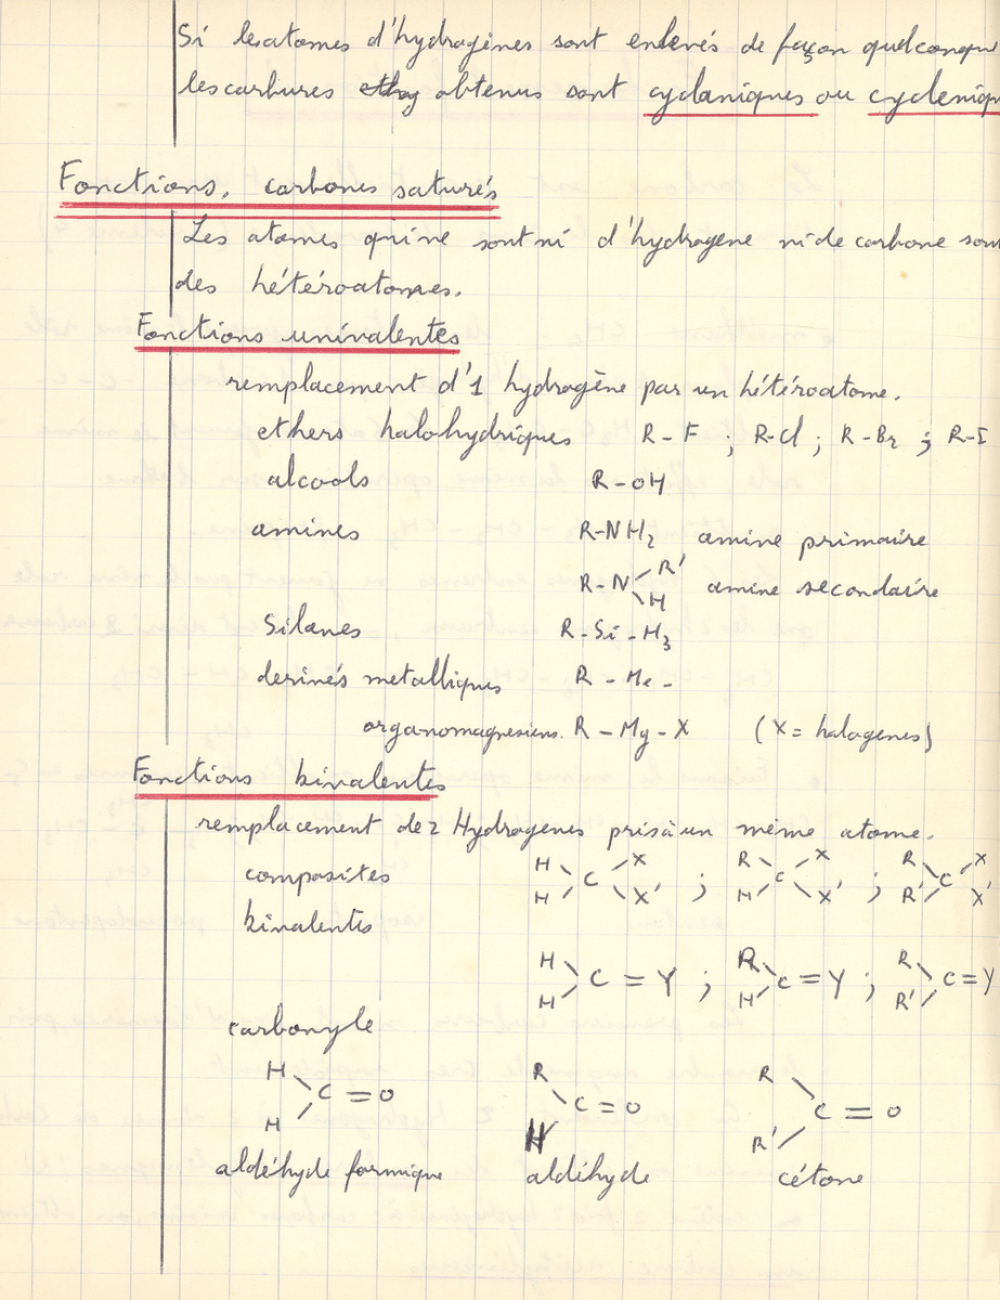 Si les atomes d'hydrogènes sont enlevés de façon quelconqu
les carbures obtenus sont cyclaniques ou cycleniqu
Fonctions. carbones saturés
Les atomes qui ne sont ni d'hydrogène ni de carbone sont
des hétéroatomes.
Fonctions univalentes
remplacement d'1 hydrogène par un hétéroatome.
ethers halohydriques R - F ; R-Cl ; R - Br ; R-I
alcools R - OH
amines R-NH2 amine primaire
R - N R' H amine secondaire
Silanes R - Si - H3
derivés metalliques R - Me -
organomagnesiens. R - Mg - X (X = halogenes)
Fonctions bivalentes
remplacement de 2 Hydrogenes pris à un même atome.
composites H H C X X' ; R H C X X' ; R R' C X X'
bivalentes
H H C = Y ; R H C = Y ; R R' C = Y
carbonyle
H H C = O R H C = O R R' C = O
aldéhyde formique aldéhyde cétone